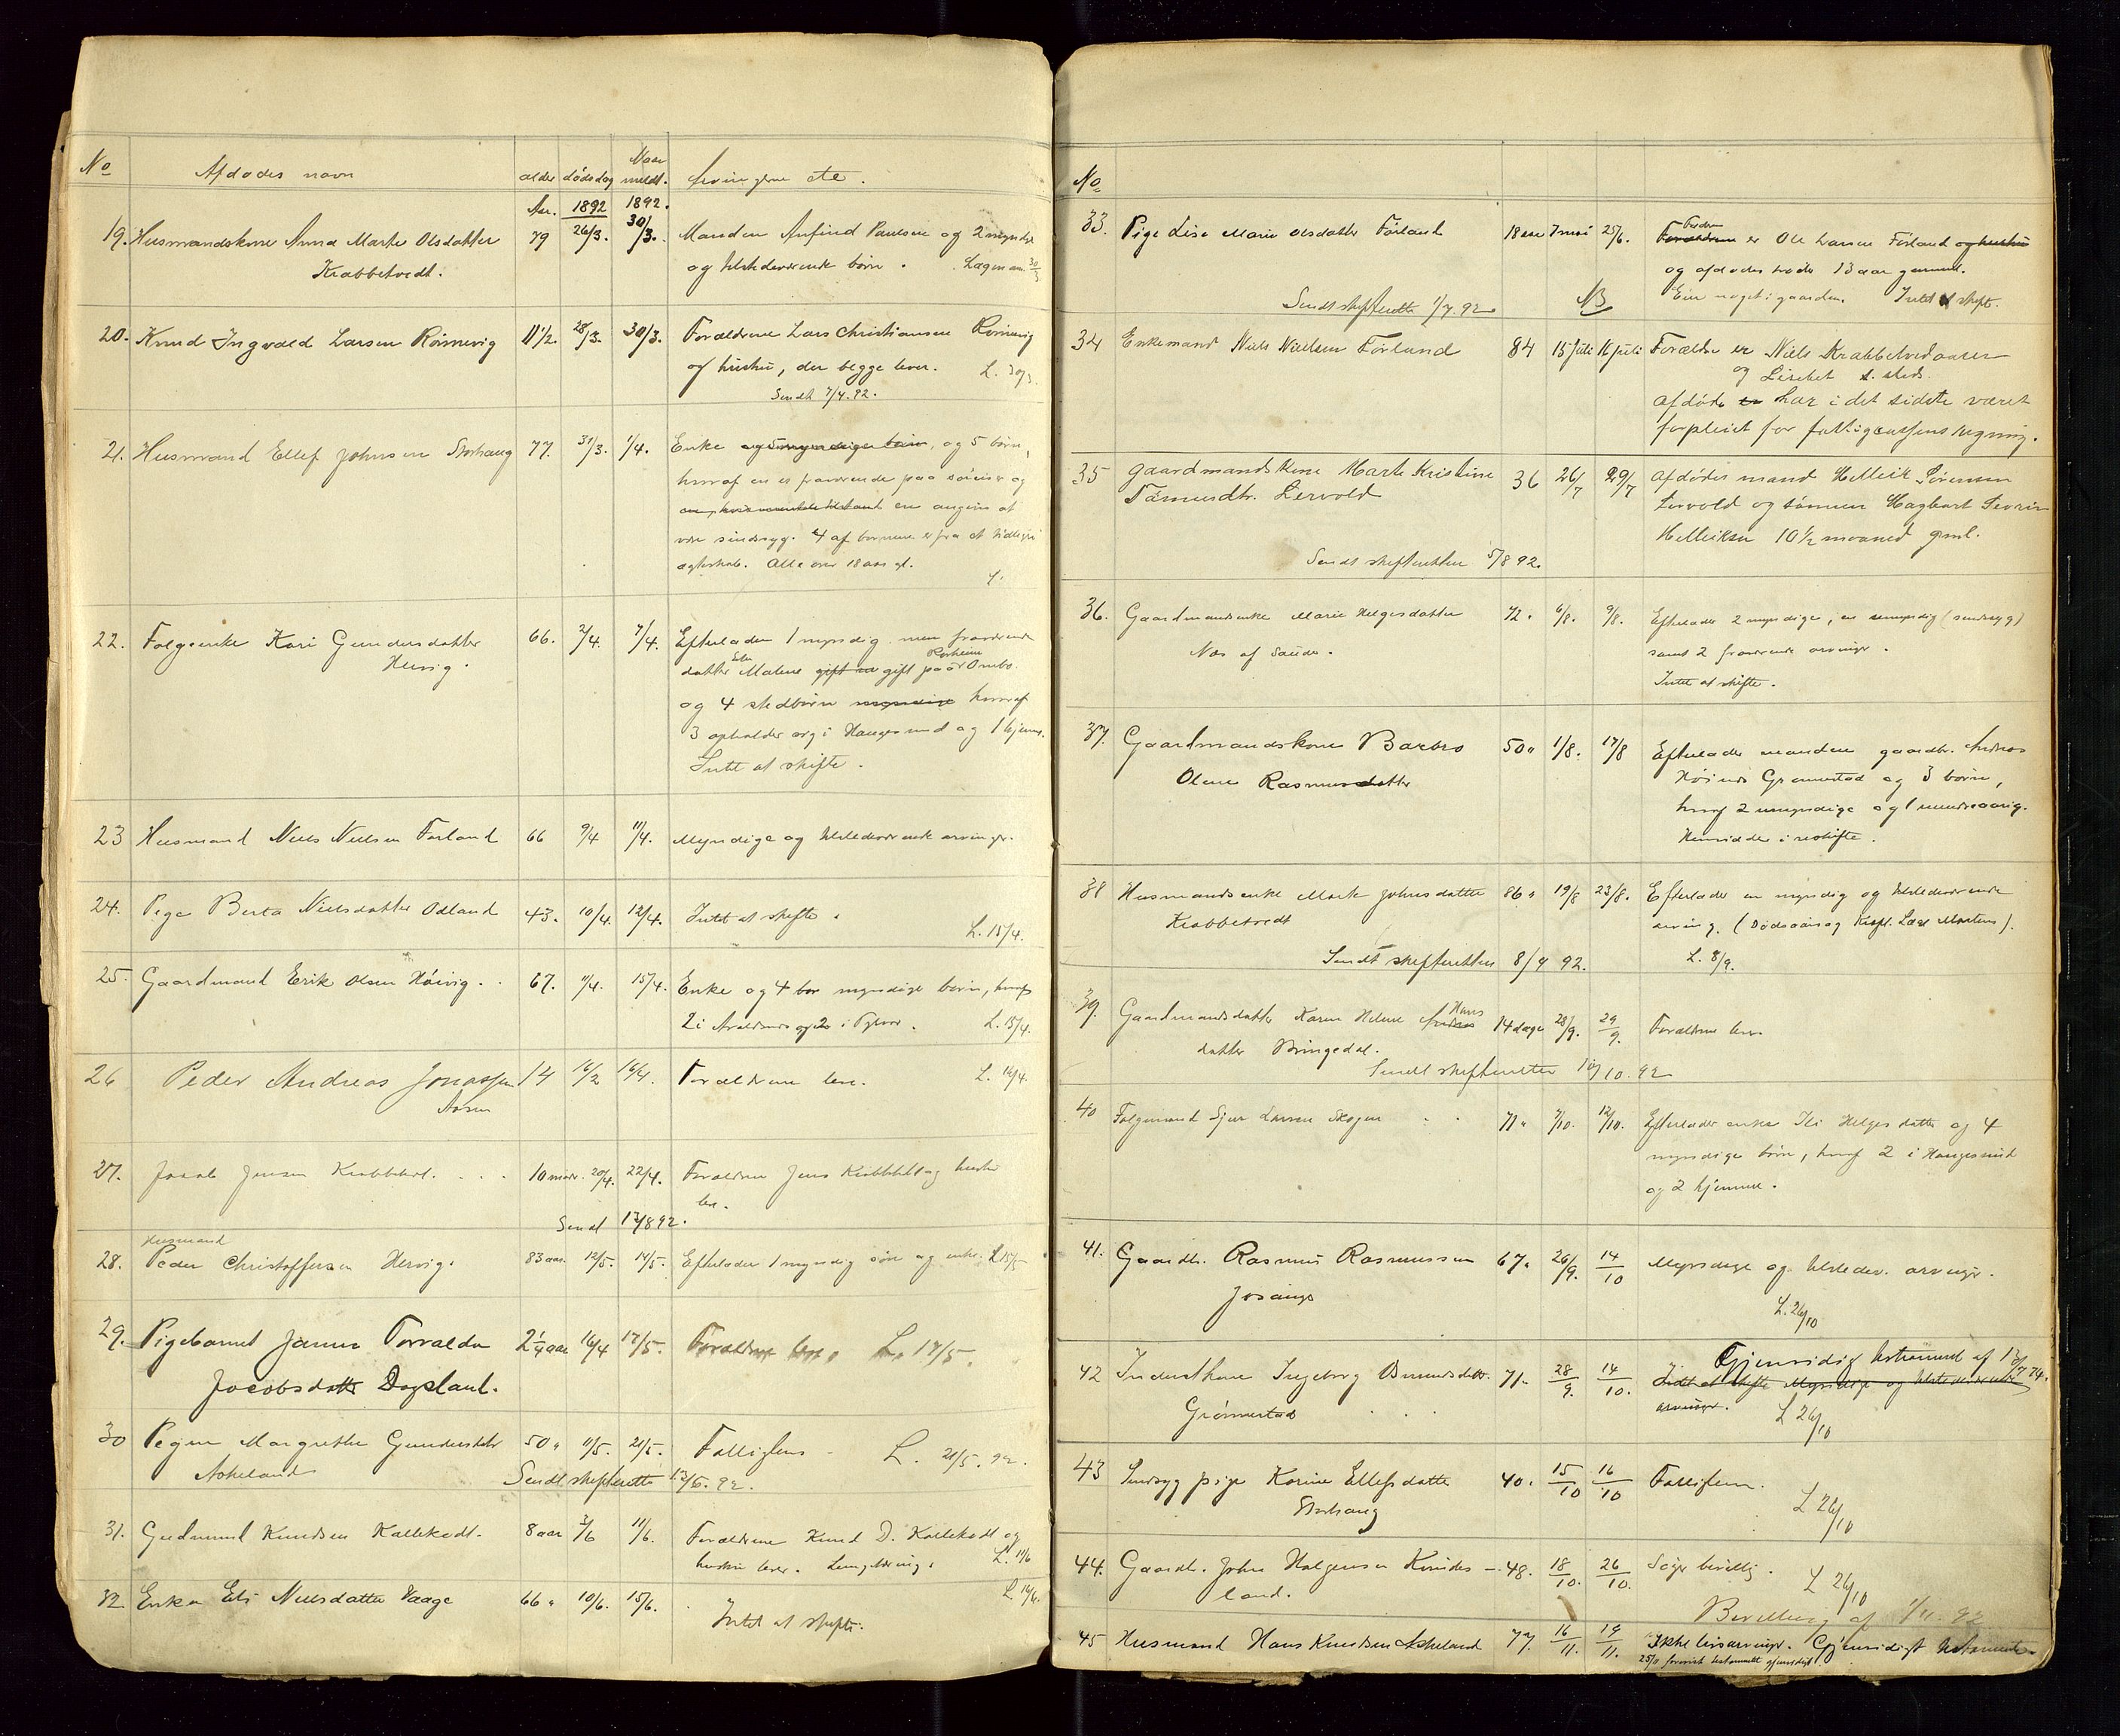 No Afdødes navn alder dødsdag Naar meldt. Arvingerne etc.
Aar. 1892 1892.
19. Husmandskone Anna Marte Olsdatter 79 26/3. 30/3. Manden Anfind Paulsen og 2 myndige
Krabbetvedt. og tilstedeværende børn. Lægeran. 30/3
20. Knud Ingvald Larsen Rømevig 11 1/2. 28/3. 30/3. Forældrene Lars Christiansen Rømevig
og hustru, der begge lever. L. 30/3.
Sendt 7/4. 92.
21. Husmand Ellef Johnsen Storhaug 77. 31/3. 1/4. Enke og 5 myndige børn, og 5 børn,
hvoraf en er fraværende paa søreise og
en angives at
være sindssyg. 4 af børnene er fra et tidligere
ægteskab. Alle over 18 aar gl.
L.
22. Folgeenke Kari Gundersdatter 66. 2/4. 7/4. Efterlader 1 myndig men fraværende
Hervig. datter Malene gift paa Ombo.
og 4 stedbørn myndige hvoraf
3 opholder sig i Haugesund og 1 hjemme.
Intet at skifte.
23 Husmand Niels Nielsen Førland 66 9/4 11/4. Myndige og tilstedeværende arvinger.
24. Pige Berta Nielsdatter Odland 43. 10/4. 12/4. Intet at skifte.
L. 15/4.
25. Gaardmand Erik Olsen Høivig. 67. 11/4. 15/4. Enke og 4 bor myndige børn, hvoraf
2 i og 2 i L. 15/4.
26 Peder Andreas Jonassen 14 16/2 16/4. Forældrene leve. L. 16/4.
27. Jacob Jensen Krabbetvedt. 10 mdr. 20/4. 22/4. Forældrene Jens Krabbetvedt og hustru
lev.
Sendt 13/8 92.
Husmand
28. Peder Christoffersen Hervig. 83 aar. 12/5. 14/5. Efterlader 1 myndig søn og enke. L 15/5
29. Pigebarnet Janna Torvalda 2 1/4 aar 16/4 17/5. Forældrene leve. L. 17/5.
Jacobsdatter Dagsland.
30 Pigen Margrethe Gundersdatter 50 " 11/5. 21/5. Fattiglem L. 21/5. 92.
Askeland Sendt skifteretten 13/6. 92.
31. Gudmund Knudsen Kallekodt. 8 aar 3/6 11/6. Forældrene Knud D. Kallekodt og
hustru lever. L. 11/6
32 Enke Eli Nielsdatter Vaage 66 " 10/6. 15/6. L 16/6.
Intet at skifte.
No
33. Pige Lise Marie Olsdatter Førland 18 aar 7 mai 25/6. Forældrene Faderen er Ole Larsen Førland og hustru
og afdødes broder 13 aar gammel.
Eier noget i gaarden. Intet at skifte.
Sendt skifteretten 1/7. 92. NB
34 Enkemand Niels Nielsen Førlund 84 15 juli 16 juli Forældre er Niels Krabbetvedaasen
og Lisebet s. steds.
Afdøde er har i det sidste været
forpleiet for fattigcassens regning.
35 Gaardmandskone Marte Kristine 36 26/7 29/7 Afdødes mand Helleik Sørensen
Tømmersdtr. Lervold Lervold og sønnen Hagbart Severin
Helleiksen 10 1/2 maaned gml.
Sendt skifteretten 5/8 92.
36. Gaardmandsenke Marie Helgesdatter 72. 6/8. 9/8. Efterlader 2 myndige, en umyndig (sindssyg)
Næs af Saude. samt 2 fraværende arvinger.
Intet at skifte.
37. Gaardmandskone Barbro 50 " 1/8. 17/8 Efterlader manden gaardbr. Andreas
Olene Rasmusdatter Grønnestad og 3 børn,
hvoraf 2 umyndige og 1 mindreaarig.
Hensidder i uskifte.
38 Husmandsenke Marte Johnsdatter 86 " 19/8 23/8. Efterlader en myndig og tilstedeværende
Krabbetvedt arving. (Dødsaarsag Kirtel. Læge Martens).
Sendt skifteretten 8/9 92. L. 8/9.
39. Gaardmandsdatter Karen Helene Andreas Hans 14 dage 28/9. 29/9. Forældrene lever
datter Bringedal.
Sendt skifteretten 10/10. 92
40 Folgemand Sjur Larsen Skogen 71 " 7/10. 12/10. Efterlader enke Eli Helgesdatter og 4
myndige børn, hvoraf 2 i Haugesund
og 2 hjemme.
41. Gaardbr. Rasmus Rasmussen 67. 26/9. 14/10 Myndige og tilstedev. arvinger.
Jøsang L. 26/10
42 Inderstkone Ingeborg 71. 28/9. 14/10. Gjensidig testament af 13/7 74.
Intet at skifte Myndige og tilstedeværende
Grønnestad arvinger. L 26/10
43 Sindssyg pige Karine Ellefsdatter 40. 15/10 16/10 Fattiglem.
Storhaug L 26/10
44. Gaardbr. John Helgesen Kvindes- 48. 18/10. 26/10. Søger bevilling.
land. L 26/10
Bevilling af 1/11. 92
45 Husmand Hans Knudsen Askeland 77 16/11. 19/11. Ikke livsarvinger. Gjensidigt testament
25/11 forevist testamentet gjensidigt